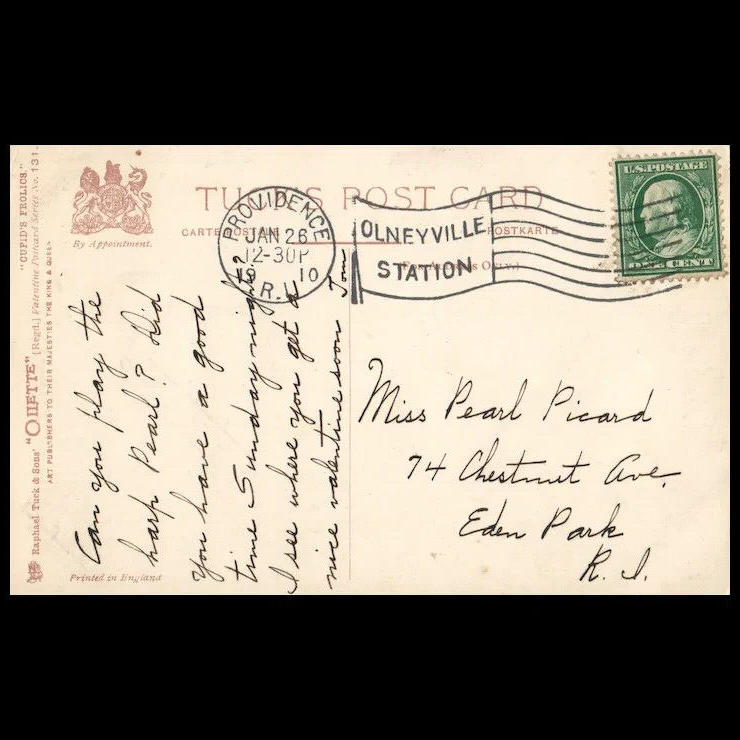 "CUPID'S FROLICS."
Raphael Tuck & Sons' "OILETTE" [Regd.] Valentine Postcard Series No. 131.
ART PUBLISHERS TO THEIR MAJESTIES THE KING & QUEEN
By Appointment.
TUCK'S POST CARD
CARTE POSTALE
POSTKARTE
PROVIDENCE
JAN 26
12-30P
19 10
R.I.
OLNEYVILLE
STATION
U.S. POSTAGE
ONE CENT
Can you play the
harp Pearl? Did
you have a good
time Sunday night?
I see where you get a
nice valentine soon Tom
Miss Pearl Picard
74 Chestnut Ave.
Eden Park
R. I.
Printed in England